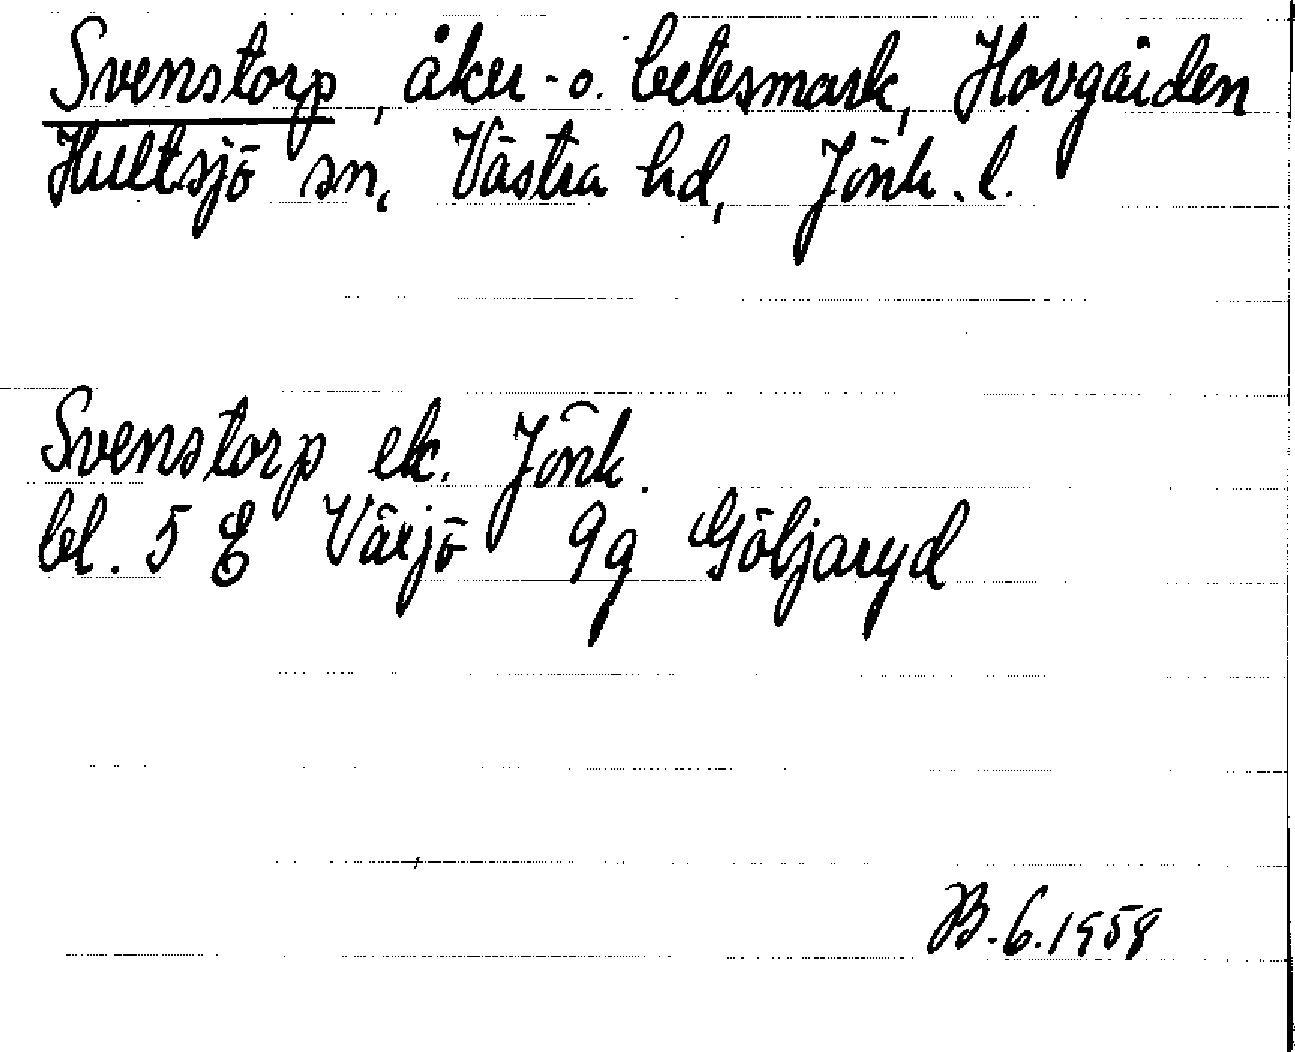 Svenstorp, åker- o. betesmark, Hovgården
Hultsjö sn, Västra hd, Jönk. l.
Svenstorp ek. Jönk.
bl. 5 E Växjö 9g Göljaryd
B.6.1958